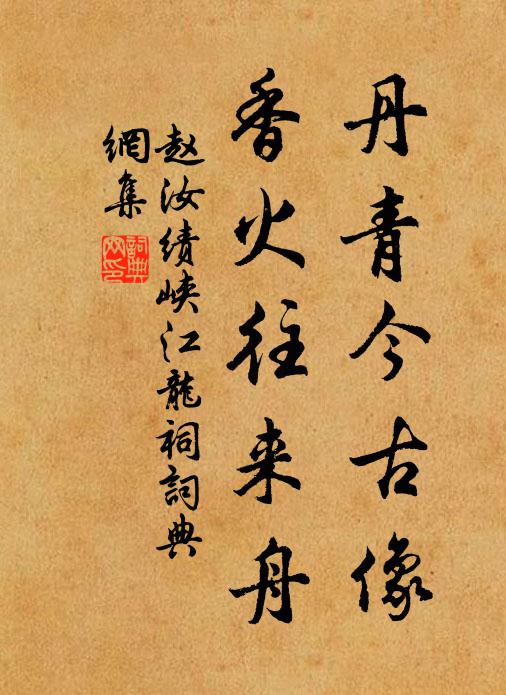 丹青今古像
香火往来舟
赵汝绩峡江龍祠詞典
網集
詞典網印